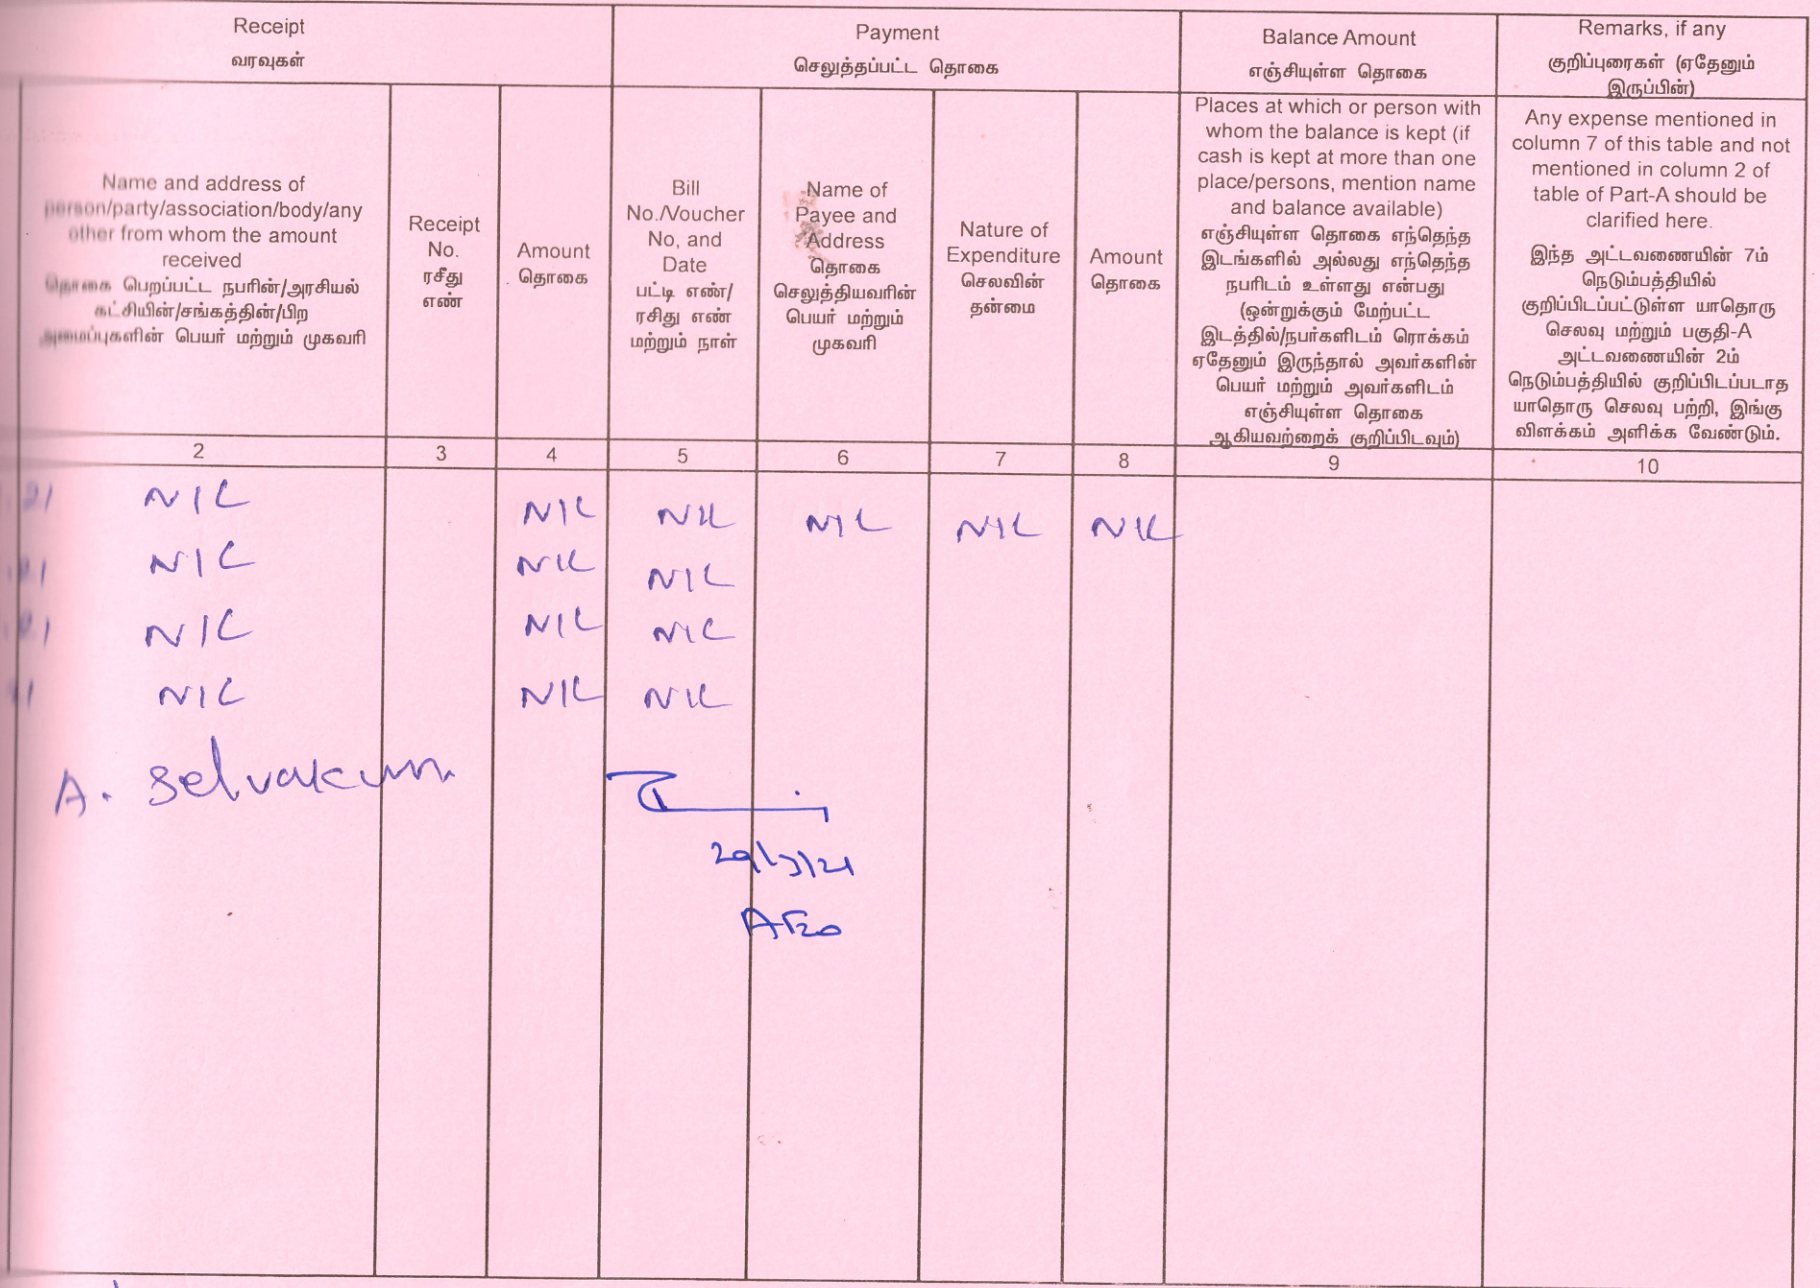 Receipt
வரவுகள்
Payment
செலுத்தப்பட்ட தொகை
Balance Amount
எஞ்சியுள்ள தொகை
Remarks, if any
குறிப்புரைகள் (ஏதேனும்
இருப்பின்)
Name and address of
person/party/association/body/any
other from whom the amount
received
தொகை பெறப்பட்ட நபரின்/அரசியல்
கட்சியின்/சங்கத்தின்/பிற
அமைப்புகளின் பெயர் மற்றும் முகவரி
Receipt
No.
ரசீது
எண்
Amount
தொகை
Bill
No./Voucher
No, and
Date
பட்டி எண்/
ரசிது எண்
மற்றும் நாள்
Name of
Payee and
Address
தொகை
செலுத்தியவரின்
பெயர் மற்றும்
முகவரி
Nature of
Expenditure
செலவின்
தன்மை
Amount
தொகை
Places at which or person with
whom the balance is kept (if
cash is kept at more than one
place/persons, mention name
and balance available)
எஞ்சியுள்ள தொகை எந்தெந்த
இடங்களில் அல்லது எந்தெந்த
நபரிடம் உள்ளது என்பது
(ஒன்றுக்கும் மேற்பட்ட
இடத்தில்/நபர்களிடம் ரொக்கம்
ஏதேனும் இருந்தால் அவர்களின்
பெயர் மற்றும் அவர்களிடம்
எஞ்சியுள்ள தொகை
ஆகியவற்றைக் குறிப்பிடவும்)
Any expense mentioned in
column 7 of this table and not
mentioned in column 2 of
table of Part-A should be
clarified here.
இந்த அட்டவணையின் 7ம்
நெடும்பத்தியில்
குறிப்பிடப்பட்டுள்ள யாதொரு
செலவு மற்றும் பகுதி-A
அட்டவணையின் 2ம்
நெடும்பத்தியில் குறிப்பிடப்படாத
யாதொரு செலவு பற்றி, இங்கு
விளக்கம் அளிக்க வேண்டும்.
2 3 4 5 6 7 8 9 10
NIL NIL NIL NIL NIL NIL
NIL NIL NIL
NIL NIL NIL
NIL NIL NIL
A. Selvakum
29/3/21
AEO